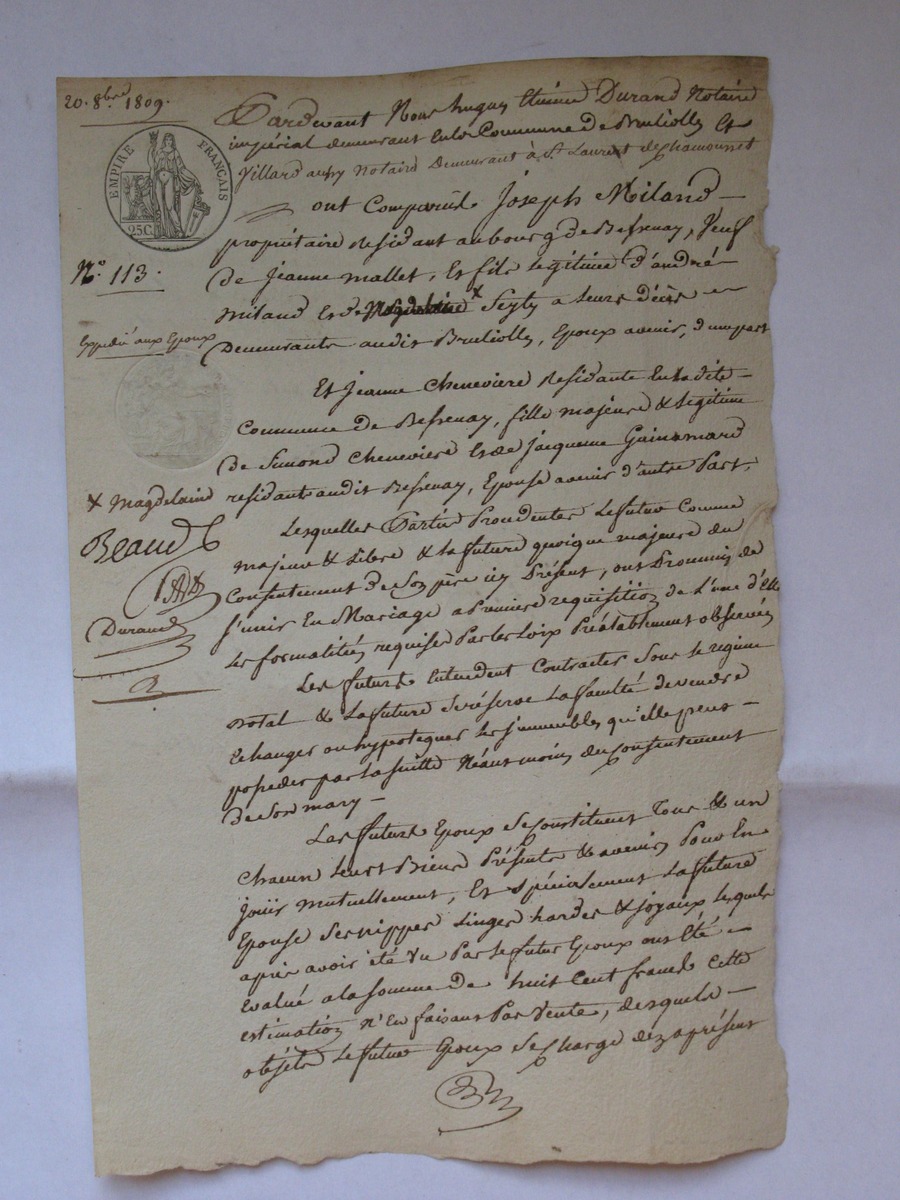 20. 8bre 1809.
EMPIRE FRANÇAIS
25C.
N° 113.
Expedié aux Epoux
x Magdelaine
Beaud
Durand
Pardevant Nous hugues Etienne Durand Notaire
impérial demeurant En la Commune de Brulliolles Et
Villard aussy Notaire Demeurant à St Laurent de Chamousset
ont Comparu Joseph Miland
propriétaire residant au bourg de Bessenay, Veuf
De jeanne mallet, Et fils legitime d'andré
miland Et de x Seyty a leurs décès
Demeurants audit Brulliolles, Epoux avenir, d'une part
Et jeanne Chenevière Residante En la dite
Commune de Bessenay, fille majeure & legitime
De Simond Chenevière Et de jacqueme Guinamard
residants audit Bessenay, Epouse avenir d'autre Part,
Lesquelles Parties Procedentes Le futur Comme
majeur & Libre & La future quoique majeure du
Consentement de Son père icy Présent, ont Promis de
s'unir En Mariage a Premiere requisition de L'une d'Elle
les formalités requises Par les Loix Préalablement observées
Les futurs Entendent Contracter Sous le regime
Dotal & La future Se réserve La faculté de vendre
Echanger ou hypotequer les jmmeubles qu'elle peut
posseder par La suitte Néantmoins du Consentement
de Son mary
Les futurs Epoux Se Constituent Tous & un
Chacun Leurs Biens Présents & avenir Pour En
jouïr mutuellement, Et Spécialement La future
Epouse Ses nippes Linges hardes & joyaux Lesquels
après avoir été vu Par Le futur Epoux ont Eté
Evalué a la somme de huit Cent francs Cette
estimation N'En faisant Pas Vente, desquels
objets Le futur Epoux Se Charge dez aprésent